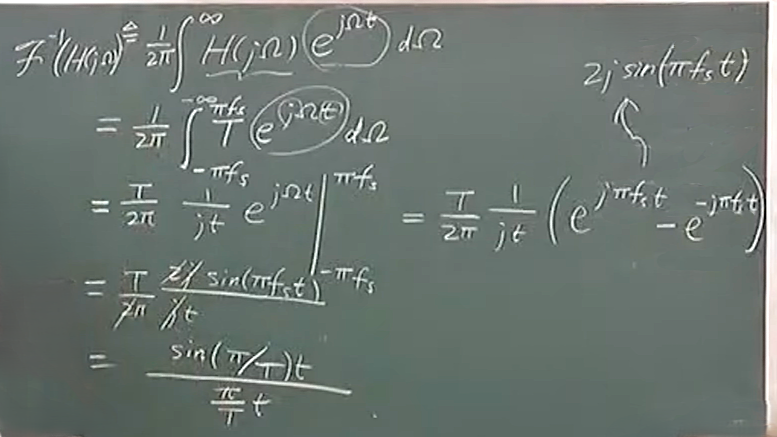 ℱ⁻¹(H(jΩ)) ≜ 1/2π ∫_{-∞}^{∞} H(jΩ) e^{jΩt} dΩ
= 1/2π ∫_{-πf_s}^{πf_s} T e^{jΩt} dΩ
= T/2π 1/jt e^{jΩt} |_{-πf_s}^{πf_s} = T/2π 1/jt (e^{jπf_s t} - e^{-jπf_s t})
2j sin(πf_s t)
= T/2π 2j sin(πf_s t)/jt
= sin(π/T)t / π/T t